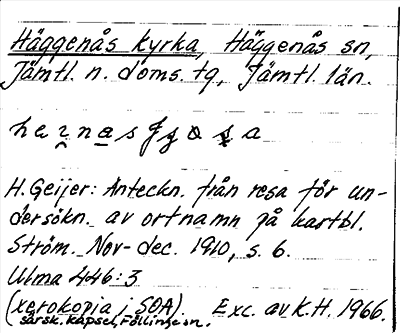 Häggenås kyrka, Häggenås sn,
Jämtl. n. doms. tg, Jämtl. län.
H. Geijer: Anteckn. från resa för un-
dersökn. av ortnamn på kartbl.
Ström. Nov-dec. 1910, s. 6.
Ulma 446:3
(xerokopia i SOA). Exc. av K.H. 1966.
särsk. kapsel, Föllinge sn.